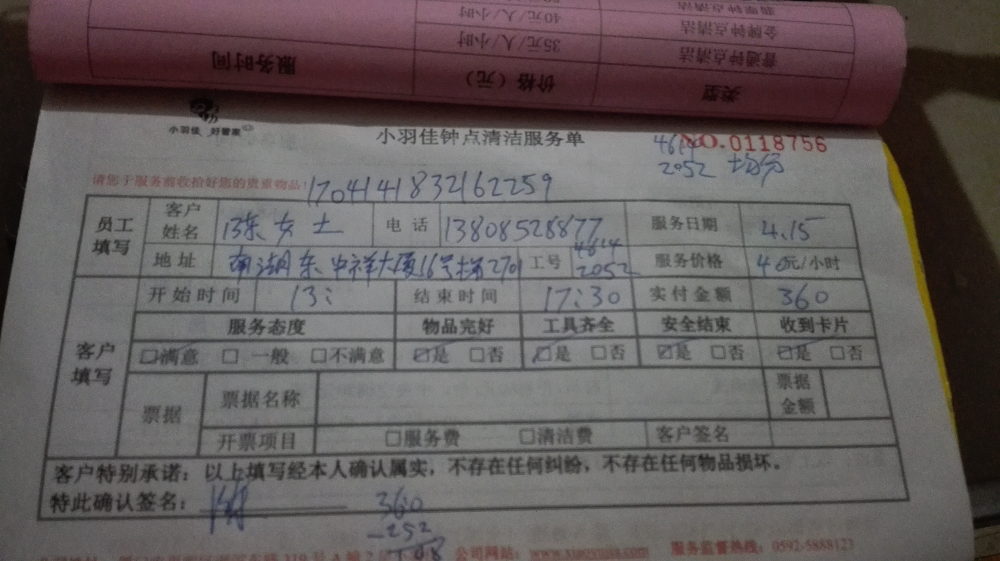 40元/人/小时
金牌钟点清洁
35元/人/小时
普通钟点清洁
服务时间
价格（元）
类型
小羽佳 好管家
小羽佳钟点清洁服务单
NO.0118756
4614
2052 均分
请您于服务前收拾好您的贵重物品!
1704141832162259
员工填写
客户姓名 陈女士 电话 13808528877 服务日期 4.15
地址 南湖东中祥大厦16号楼2701 工号 4614 2052 服务价格 40元/小时
客户填写
开始时间 13: 结束时间 17:30 实付金额 360
服务态度 物品完好 工具齐全 安全结束 收到卡片
☑满意 □一般 □不满意 ☑是 □否 ☑是 □否 ☑是 □否 ☑是 □否
票据 票据名称 票据金额
开票项目 □服务费 □清洁费 客户签名
客户特别承诺：以上填写经本人确认属实，不存在任何纠纷，不存在任何物品损坏。
特此确认签名：
360
-252
108
公司网站： 服务监督热线：0592-5888123